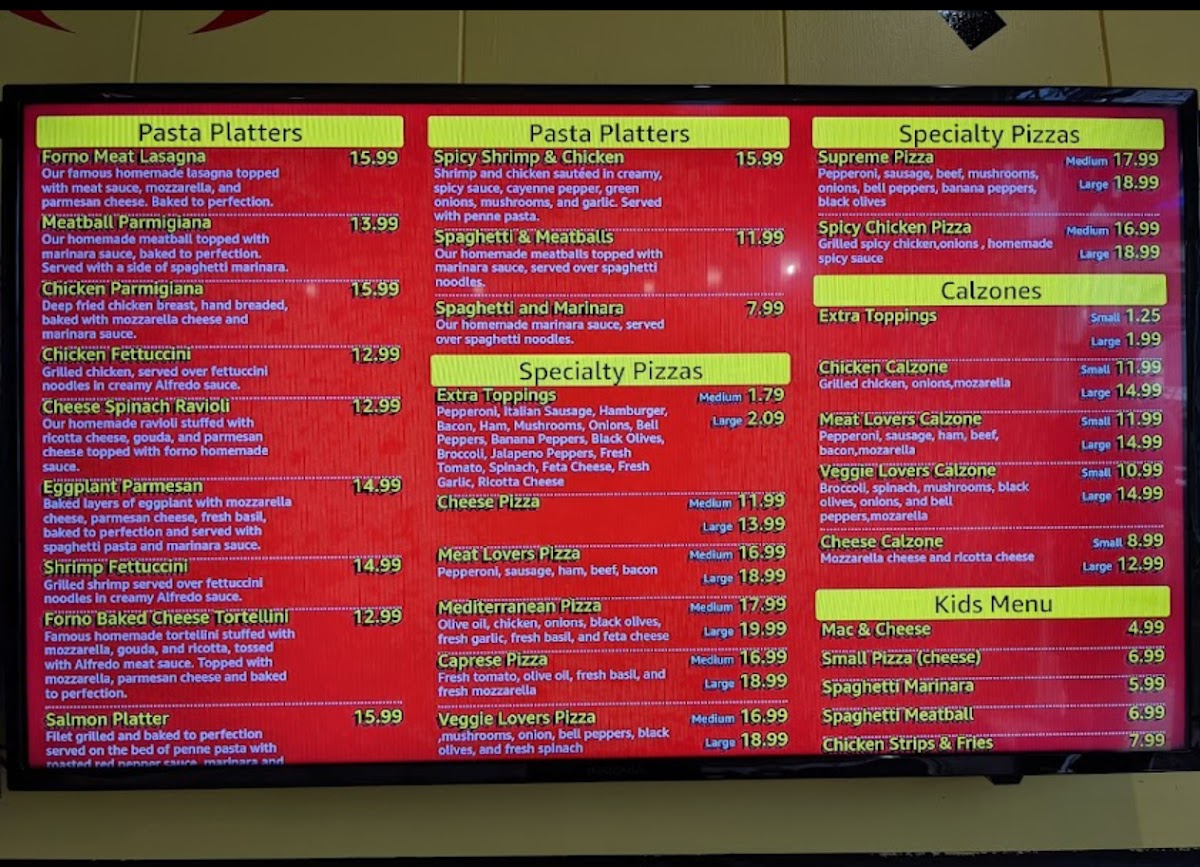 Pasta Platters
Forno Meat Lasagna 15.99
Our famous homemade lasagna topped
with meat sauce, mozzarella, and
parmesan cheese. Baked to perfection.
Meatball Parmigiana 13.99
Our homemade meatball topped with
marinara sauce, baked to perfection.
Served with a side of spaghetti marinara.
Chicken Parmigiana 15.99
Deep fried chicken breast, hand breaded,
baked with mozzarella cheese and
marinara sauce.
Chicken Fettuccini 12.99
Grilled chicken, served over fettuccini
noodles in creamy Alfredo sauce.
Cheese Spinach Ravioli 12.99
Our homemade ravioli stuffed with
ricotta cheese, gouda, and parmesan
cheese topped with forno homemade
sauce.
Eggplant Parmesan 14.99
Baked layers of eggplant with mozzarella
cheese, parmesan cheese, fresh basil,
baked to perfection and served with
spaghetti pasta and marinara sauce.
Shrimp Fettuccini 14.99
Grilled shrimp served over fettuccini
noodles in creamy Alfredo sauce.
Forno Baked Cheese Tortellini 12.99
Famous homemade tortellini stuffed with
mozzarella, gouda, and ricotta, tossed
with Alfredo meat sauce. Topped with
mozzarella, parmesan cheese and baked
to perfection.
Salmon Platter 15.99
Filet grilled and baked to perfection
served on the bed of penne pasta with
roasted red pepper sauce, marinara and
Pasta Platters
Spicy Shrimp & Chicken 15.99
Shrimp and chicken sautéed in creamy,
spicy sauce, cayenne pepper, green
onions, mushrooms, and garlic. Served
with penne pasta.
Spaghetti & Meatballs 11.99
Our homemade meatballs topped with
marinara sauce, served over spaghetti
noodles.
Spaghetti and Marinara 7.99
Our homemade marinara sauce, served
over spaghetti noodles.
Specialty Pizzas
Extra Toppings Medium 1.79
Pepperoni, Italian Sausage, Hamburger,
Large 2.09
Bacon, Ham, Mushrooms, Onions, Bell
Peppers, Banana Peppers, Black Olives,
Broccoli, Jalapeno Peppers, Fresh
Tomato, Spinach, Feta Cheese, Fresh
Garlic, Ricotta Cheese
Cheese Pizza Medium 11.99
Large 13.99
Meat Lovers Pizza Medium 16.99
Pepperoni, sausage, ham, beef, bacon
Large 18.99
Mediterranean Pizza Medium 17.99
Olive oil, chicken, onions, black olives,
Large 19.99
fresh garlic, fresh basil, and feta cheese
Caprese Pizza Medium 16.99
Fresh tomato, olive oil, fresh basil, and
Large 18.99
fresh mozzarella
Veggie Lovers Pizza Medium 16.99
,mushrooms, onion, bell peppers, black
Large 18.99
olives, and fresh spinach
Specialty Pizzas
Supreme Pizza Medium 17.99
Pepperoni, sausage, beef, mushrooms,
Large 18.99
onions, bell peppers, banana peppers,
black olives
Spicy Chicken Pizza Medium 16.99
Grilled spicy chicken,onions , homemade
Large 18.99
spicy sauce
Calzones
Extra Toppings Small 1.25
Large 1.99
Chicken Calzone Small 11.99
Grilled chicken, onions,mozarella
Large 14.99
Meat Lovers Calzone Small 11.99
Pepperoni, sausage, ham, beef,
Large 14.99
bacon,mozarella
Veggie Lovers Calzone Small 10.99
Broccoli, spinach, mushrooms, black
Large 14.99
olives, onions, and bell
peppers,mozarella
Cheese Calzone Small 8.99
Mozzarella cheese and ricotta cheese
Large 12.99
Kids Menu
Mac & Cheese 4.99
Small Pizza (cheese) 6.99
Spaghetti Marinara 5.99
Spaghetti Meatball 6.99
Chicken Strips & Fries 7.99